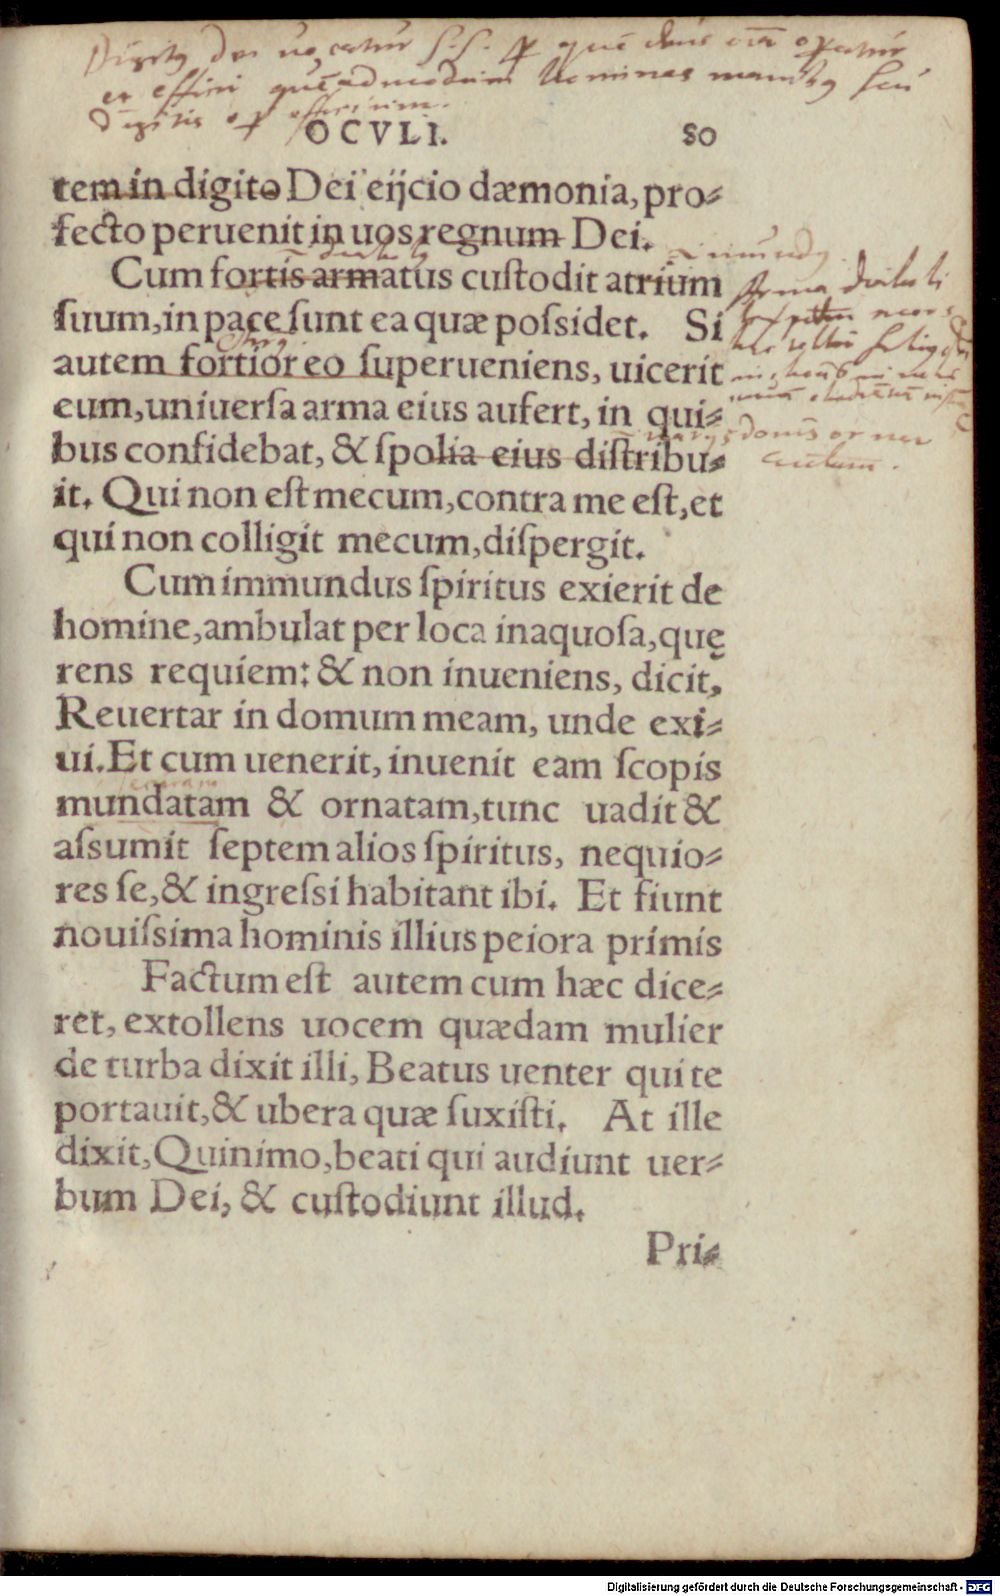 Digitus Dei vocatur S. S. ꝑ quē deus oīa operatur
et effici quēadmodum homines manibus seu
Digitis
OCVLI. 80
tem in digito Dei eijcio dæmonia, pro⸗
fecto peruenit in uos regnum Dei.
Cum fortis armatus custodit atrium
suum, in pace sunt ea quæ possidet. Si
autem fortior eo superueniens, uicerit
eum, uniuersa arma eius aufert, in qui⸗
bus confidebat, & spolia eius distribu⸗
it. Qui non est mecum, contra me est, et
qui non colligit mecum, dispergit.
Cum immundus spiritus exierit de
homine, ambulat per loca inaquosa, quę
rens requiem: & non inueniens, dicit,
Reuertar in domum meam, unde exi⸗
ui. Et cum uenerit, inuenit eam scopis
mundatam & ornatam, tunc uadit &
assumit septem alios spiritus, nequio⸗
res se, & ingressi habitant ibi. Et fiunt
nouissima hominis illius peiora primis
Factum est autem cum hæc dice⸗
ret, extollens uocem quædam mulier
de turba dixit illi, Beatus uenter qui te
portauit, & ubera quæ suxisti. At ille
dixit, Quinimo, beati qui audiunt uer⸗
bum Dei, & custodiunt illud.
Pri⸗
Digitalisierung gefördert durch die Deutsche Forschungsgemeinschaft - DFG